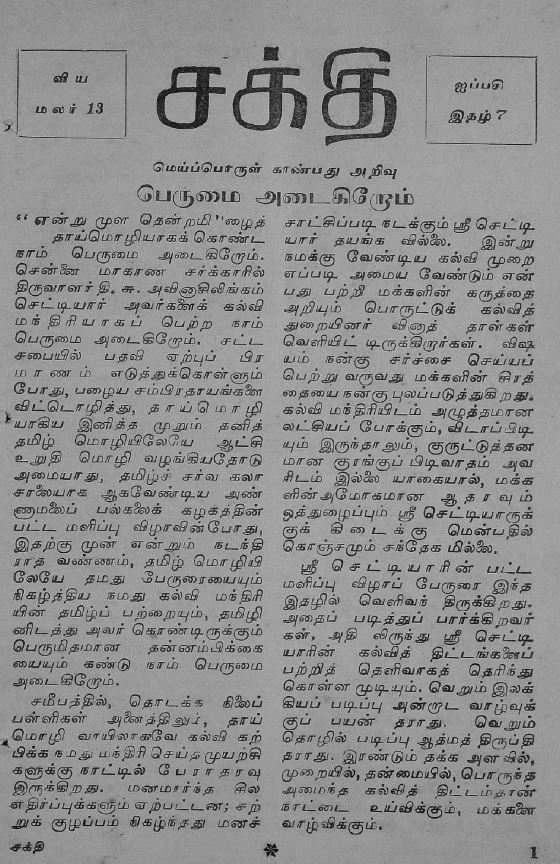 விய
மலர் 13
சக்தி
ஐப்பசி
இதழ் 7
மெய்ப்பொருள் காண்பது அறிவு
பெருமை அடைகிறோம்
“என்று முள தென்றமி”ழைத்
தாய்மொழியாகக் கொண்ட
நாம் பெருமை அடைகிறோம்.
சென்னை மாகாண சர்க்காரில்
திருவாளர் தி. சு. அவினாசிலிங்கம்
செட்டியார் அவர்களைக் கல்வி
மந்திரியாகப் பெற்ற நாம்
பெருமை அடைகிறோம். சட்ட
சபையில் பதவி ஏற்புப் பிர
மாணம் எடுத்துக்கொள்ளும்
போது, பழைய சம்பிரதாயங்களை
விட்டொழித்து, தாய்மொழி
யாகிய இனித்த முறும் தனித்
தமிழ் மொழியிலேயே ஆட்சி
உறுதி மொழி வழங்கியதோடு
அமையாது, தமிழ்ச் சர்வ கலா
சாலையாக ஆகவேண்டிய அண்
ணாமலைப் பல்கலைக் கழகத்தின்
பட்ட மளிப்பு விழாவின்போது,
இதற்கு முன் என்றும் நடந்தி
ராத வண்ணம், தமிழ் மொழியி
லேயே தமது பேருரையையும்
நிகழ்த்திய நமது கல்வி மந்திரி
யின் தமிழ்ப் பற்றையும், தமிழி
னிடத்து அவர் கொண்டிருக்கும்
பெருமிதமான தன்னம்பிக்கை
யையும் கண்டு நாம் பெருமை
அடைகிறோம்.
சமீபத்தில், தொடக்க நிலைப்
பள்ளிகள் அனைத்திலும், தாய்
மொழி வாயிலாகவே கல்வி கற்
பிக்க நமது மந்திரி செய்த முயற்சி
களுக்கு நாட்டில் பேராதரவு
இருக்கிறது. மனமார்ந்த சில
எதிர்ப்புக்களும் ஏற்பட்டன; சற்
றுக் குழப்பம் நிகழ்ந்தது மனச்
சாட்சிப்படி நடக்கும் ஸ்ரீ செட்டி
யார் தயங்க வில்லை. இன்று
நமக்கு வேண்டிய கல்வி முறை
எப்படி அமைய வேண்டும் என்
பது பற்றி மக்களின் கருத்தை
அறியும் பொருட்டுக் கல்வித்
துறையினர் வினாத் தாள்கள்
வெளியிட் டிருக்கிறார்கள். விஷ
யம் நன்கு சர்ச்சை செய்யப்
பெற்று வருவது மக்களின் சிரத்
தையை நன்கு புலப்படுத்துகிறது.
கல்வி மந்திரியிடம் அழுத்தமான
லட்சியப் போக்கும், விடாப்பிடி
யும் இருந்தாலும், குருட்டுத்தன
மான குரங்குப் பிடிவாதம் அவ
ரிடம் இல்லை யாகையால், மக்க
ளின்அமோகமான ஆதரவும்
ஒத்துழைப்பும் ஸ்ரீ செட்டியாருக்
குக் கிடைக்கு மென்பதில்
கொஞ்சமும் சந்தேக மில்லை.
ஸ்ரீ செட்டியாரின் பட்ட
மளிப்பு விழாப் பேருரை இந்த
இதழில் வெளிவந் திருக்கிறது.
அதைப் படித்துப் பார்க்கிறவர்
கள், அதி லிருந்து ஸ்ரீ செட்டி
யாரின் கல்வித் திட்டங்களைப்
பற்றித் தெளிவாகத் தெரிந்து
கொள்ள முடியும். வெறும் இலக்
கியப் படிப்பு அன்றாட வாழ்வுக்
குப் பயன் தராது. வெறும்
தொழில் படிப்பு ஆத்மத் திருப்தி
தராது. இரண்டும் தக்க அளவில்,
முறையில், தன்மையில், பொருந்த
அமைந்த கல்வித் திட்டம்தான்
நாட்டை உய்விக்கும், மக்களை
வாழ்விக்கும்.
சக்தி
1